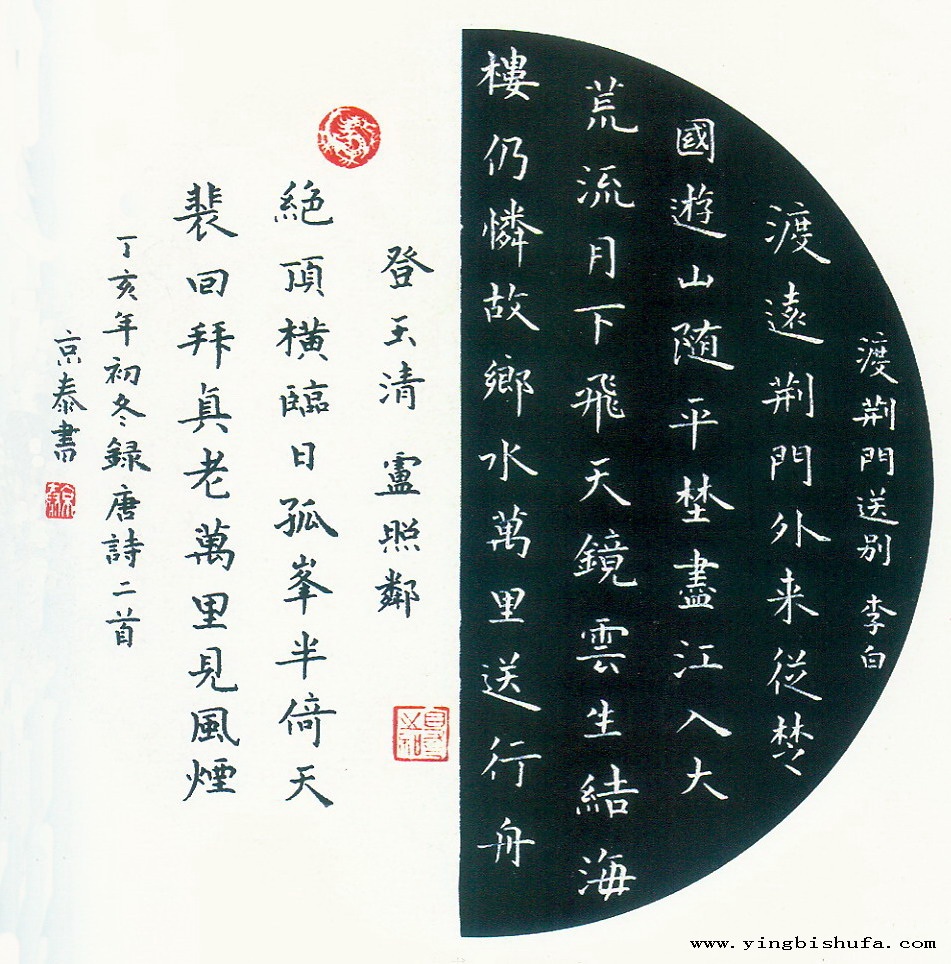 渡荆門送别 李白
渡遠荆門外来従楚
國遊山随平埜盡江入大
荒流月下飛天鏡雲生結海
樓仍憐故鄉水萬里送行舟
登玉清 盧照鄰
絶頂橫臨日孤峯半倚天
裴回拜真老萬里見風煙
丁亥年初冬録唐詩二首
京泰書
www.yingbishufa.com